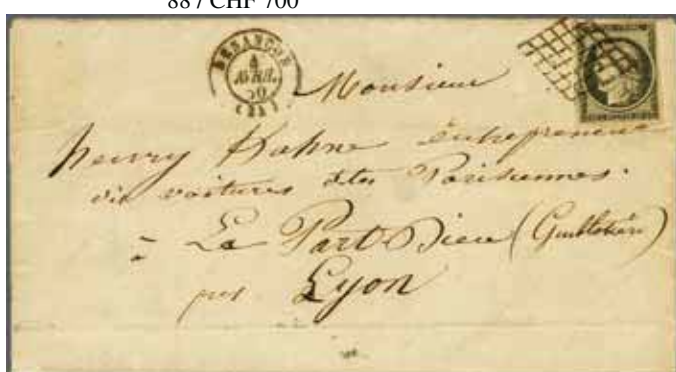 887 CHF 700
BESANÇON
4
AVRIL
50
(24)
Monsieur
henry Kahne entrepreneur
de voitures dites Parisiennes.
à La Part Dieu (Guillotière)
près Lyon